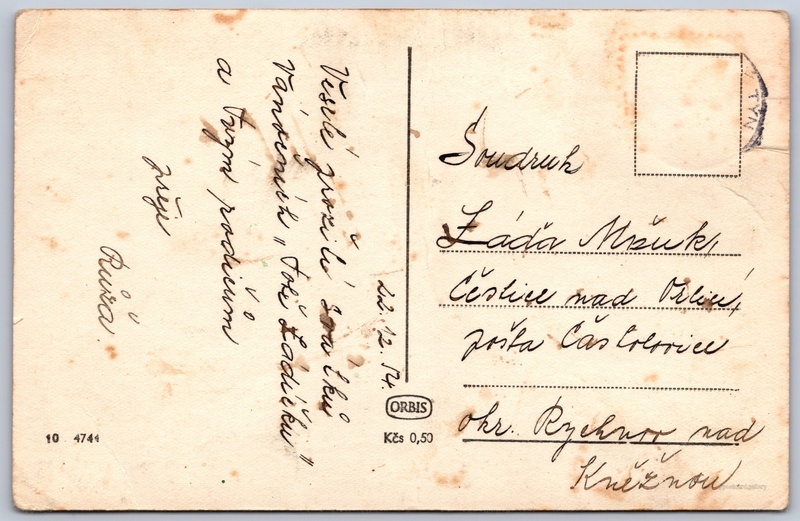 22.12.54.
Veselé prožití svátků
Vánočních „Tobě Ládíčku"
a tvým rodičům
přeje
Růža.
Soudruh
Láďa Mžuk,
Čestice nad Orlicí,
pošta Častolovice
okr. Rychnov nad
Kněžnou
ORBIS
Kčs 0,50
10 4744
TÝN